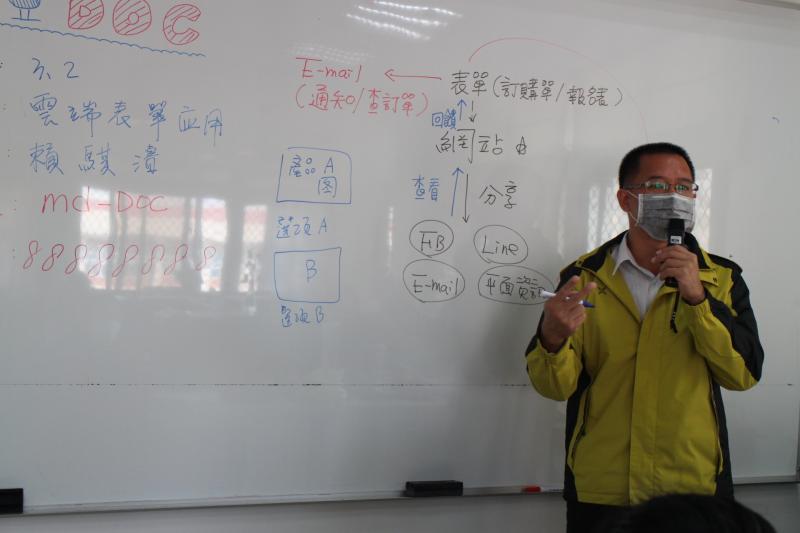 DOC
3.2
雲端表單应用
賴騏
md-DOC
88888888
產品 A
图
選項 A
B
選項 B
E-mail
(通知/查訂單)
表單(訂購單/報名)
回饋
網站
查看
分享
FB
Line
E-mail
平面資訊